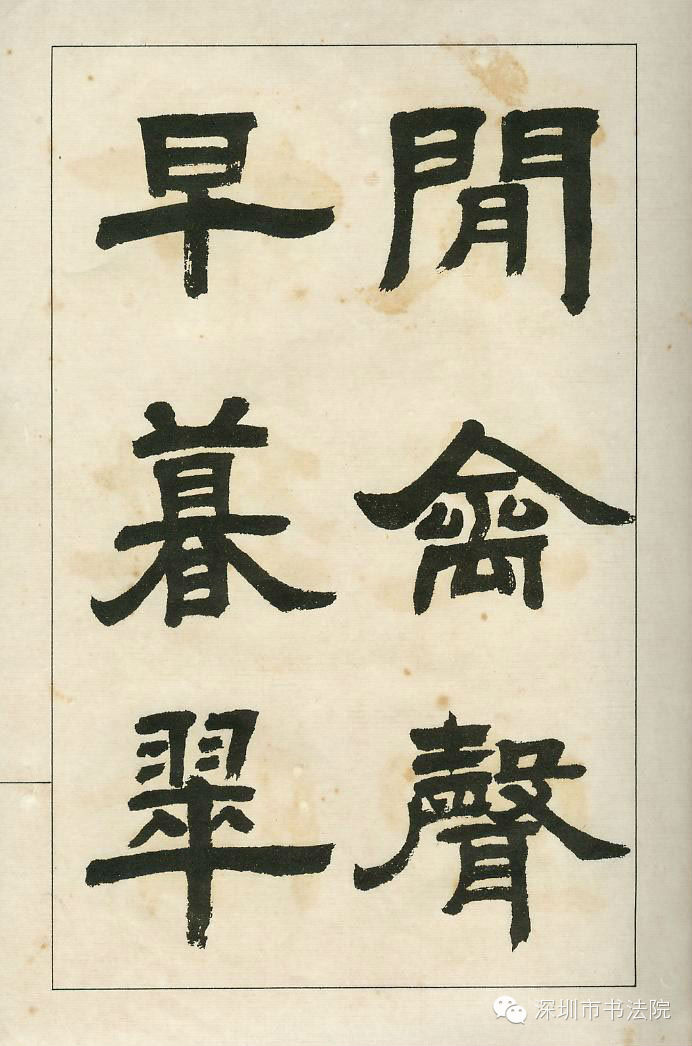 閒禽聲
早暮翠
深圳市书法院